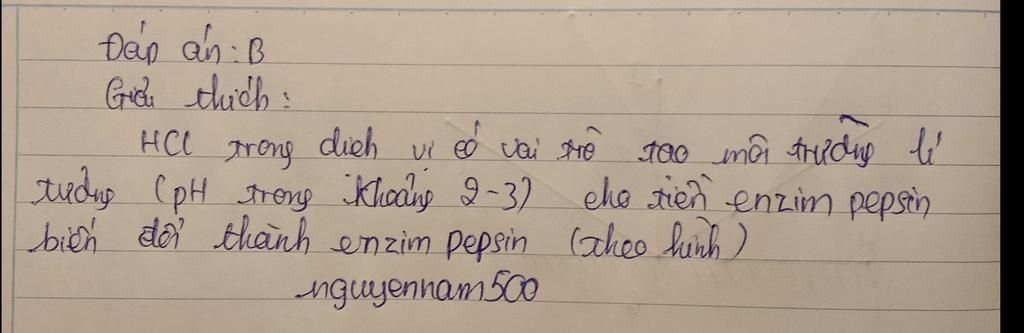 Đáp án: B
Giải thích:
HCl trong dịch vị có vai trò tạo môi trường lí
tưởng (pH trong khoảng 2-3) cho tiền enzim pepsin
biến đổi thành enzim pepsin (theo hình)
nguyennam500